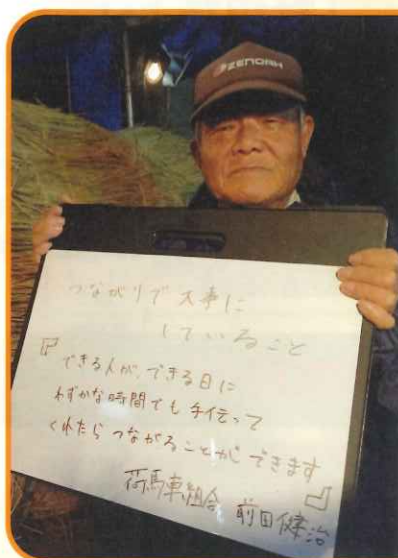 ZENOAH
つながりで大事に
していること
『できる人が、できる日に
わずかな時間でも手伝って
くれたらつながることができます』
荷馬車組合 前田健治